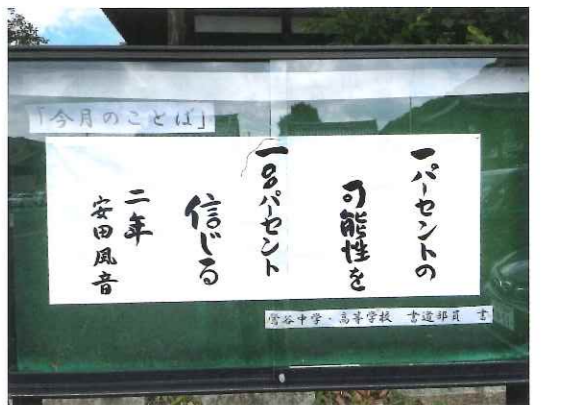 「今月のことば」
一パーセントの
可能性を
一〇〇パーセント
信じる
二年
安田風音
鶯谷中学・高等学校 書道部員 書